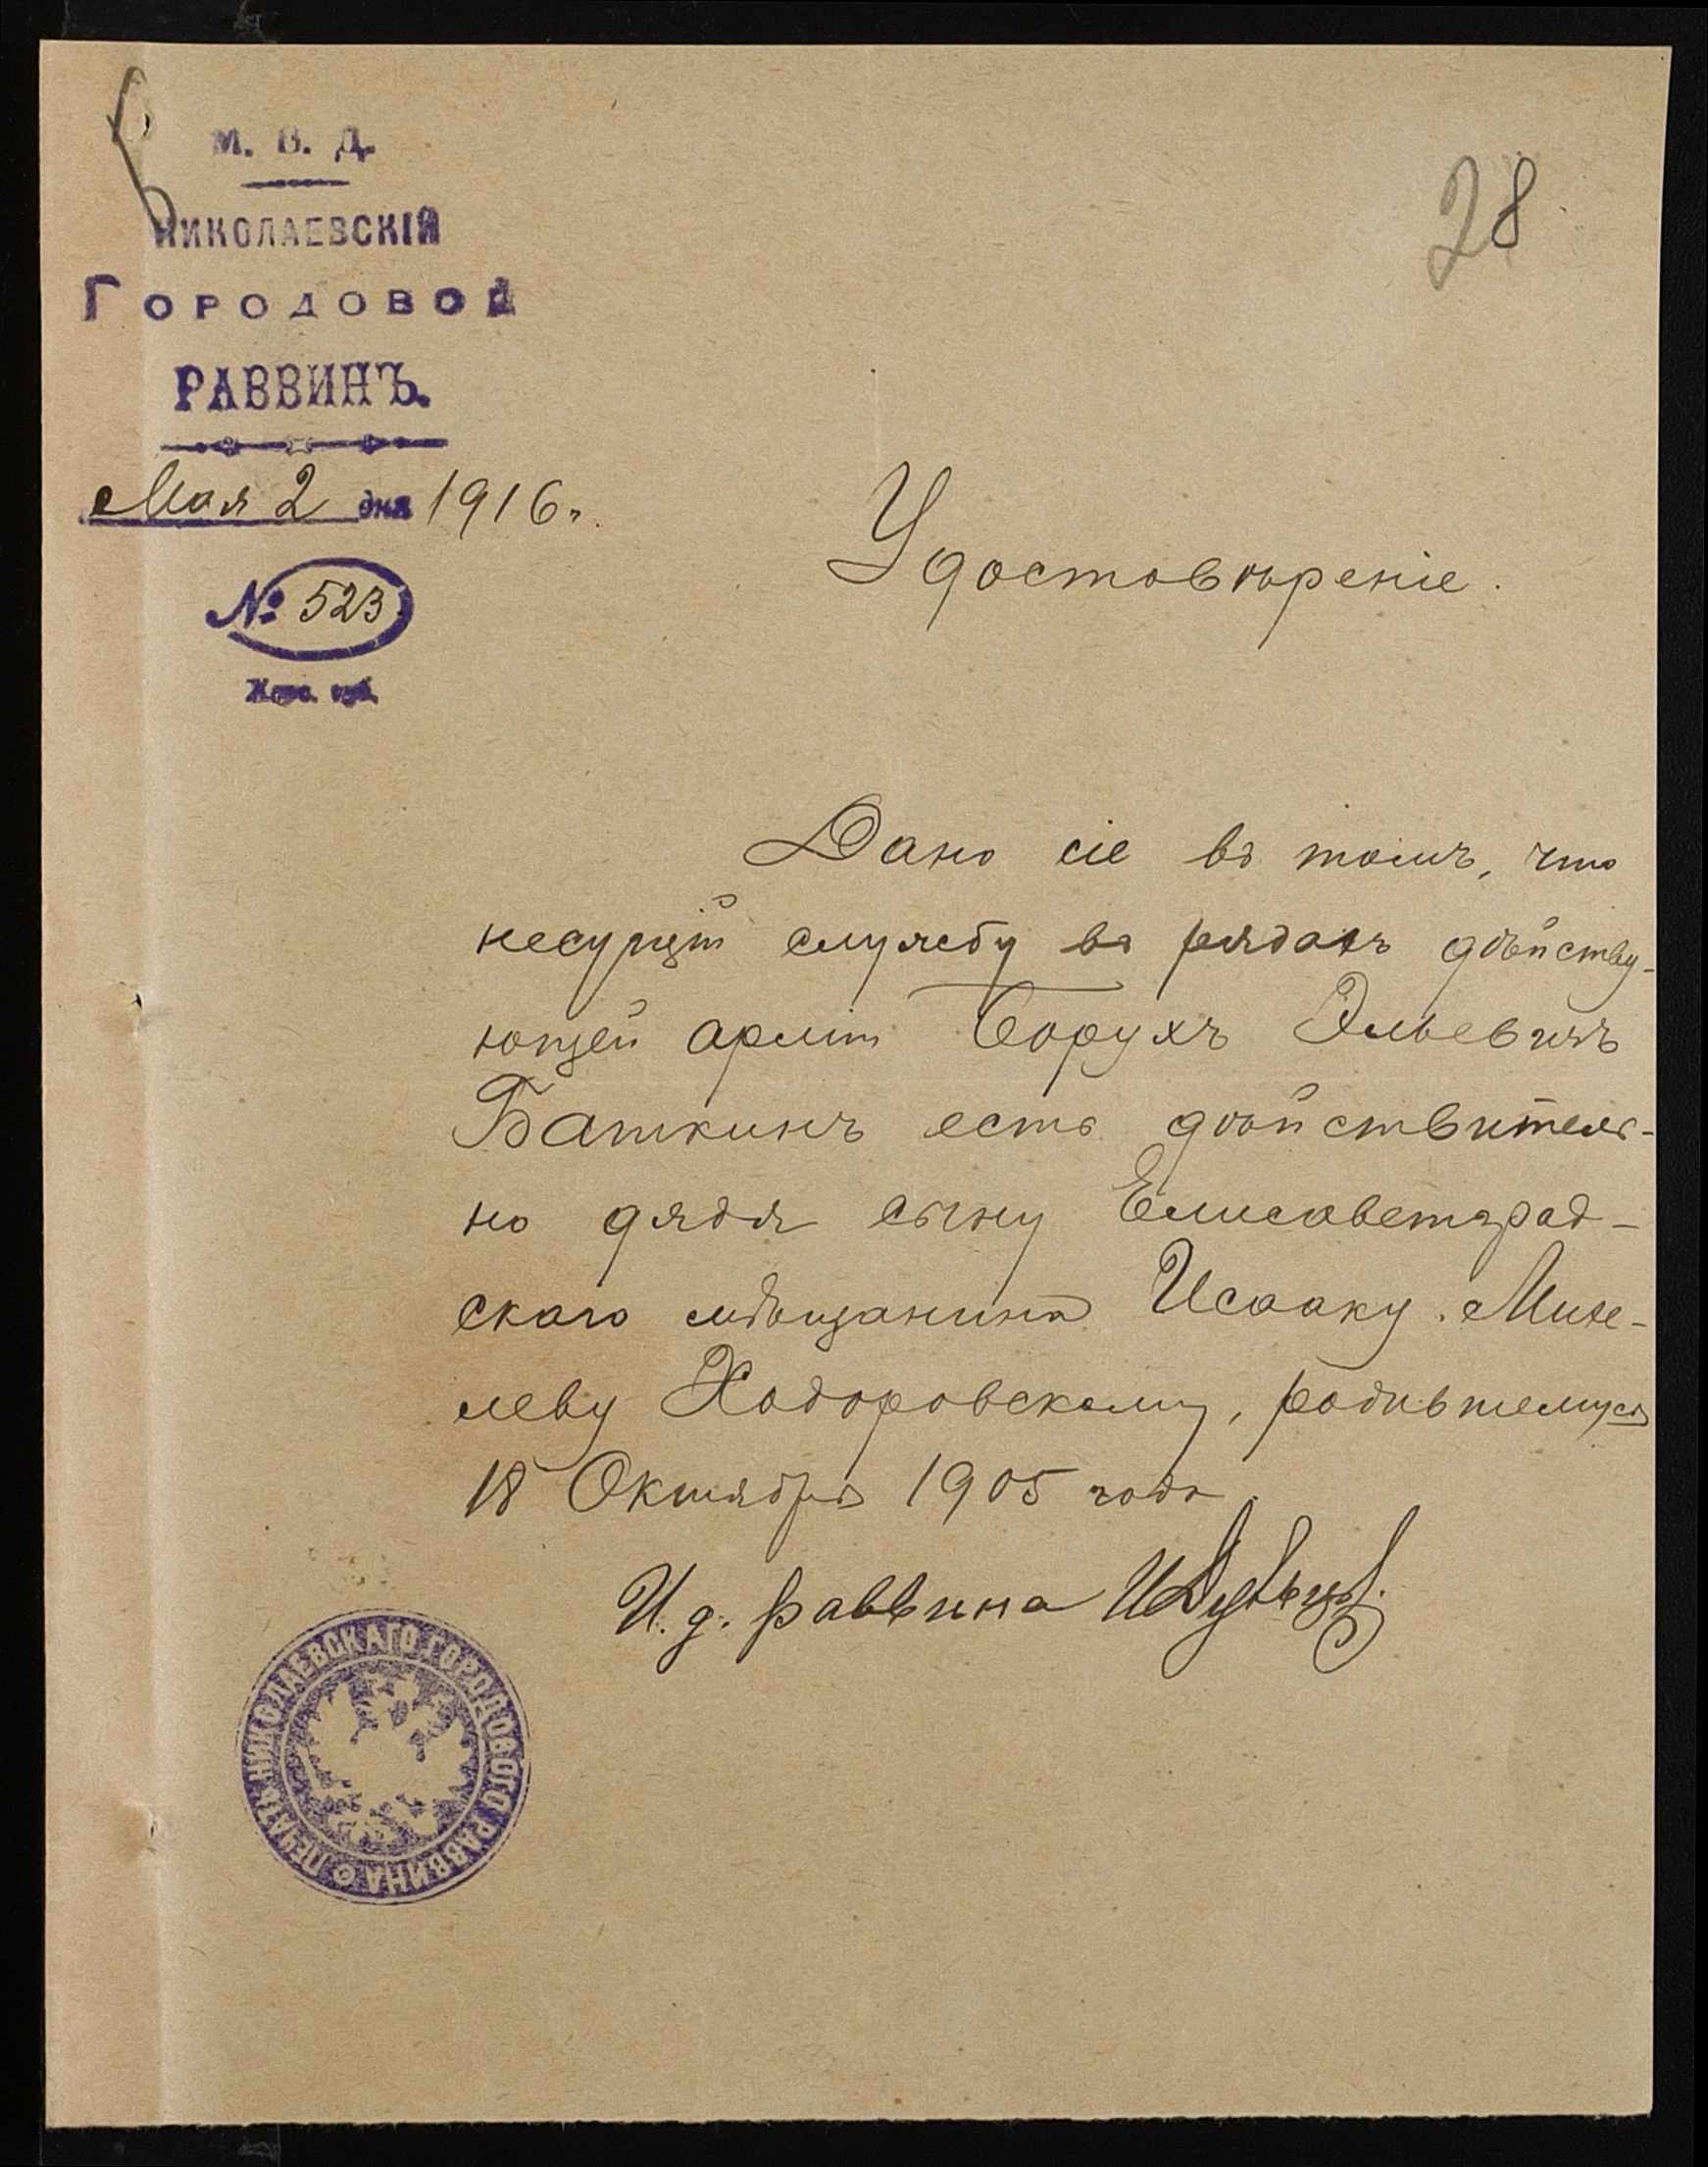 М. В. Д.
НИКОЛАЕВСКІЙ
ГОРОДОВОЙ
РАВВИНЪ.
Мая 2 дня 1916 г.
№ 523
Херс. губ.
28
Удостовѣреніе.
Дано сіе въ томъ, что
несущій службу въ рядахъ дѣйству-
ющей арміи Борухъ Эльевичъ
Баткинъ есть дѣйствитель-
но дядя сыну Елисаветград-
скаго мѣщанина Исааку Михе-
леву Ходоровскому, родившемуся
18 Октября 1905 года.
И. д. раввина
ПЕЧАТЬ НИКОЛАЕВСКАГО ГОРОДОВОГО РАВВИНА